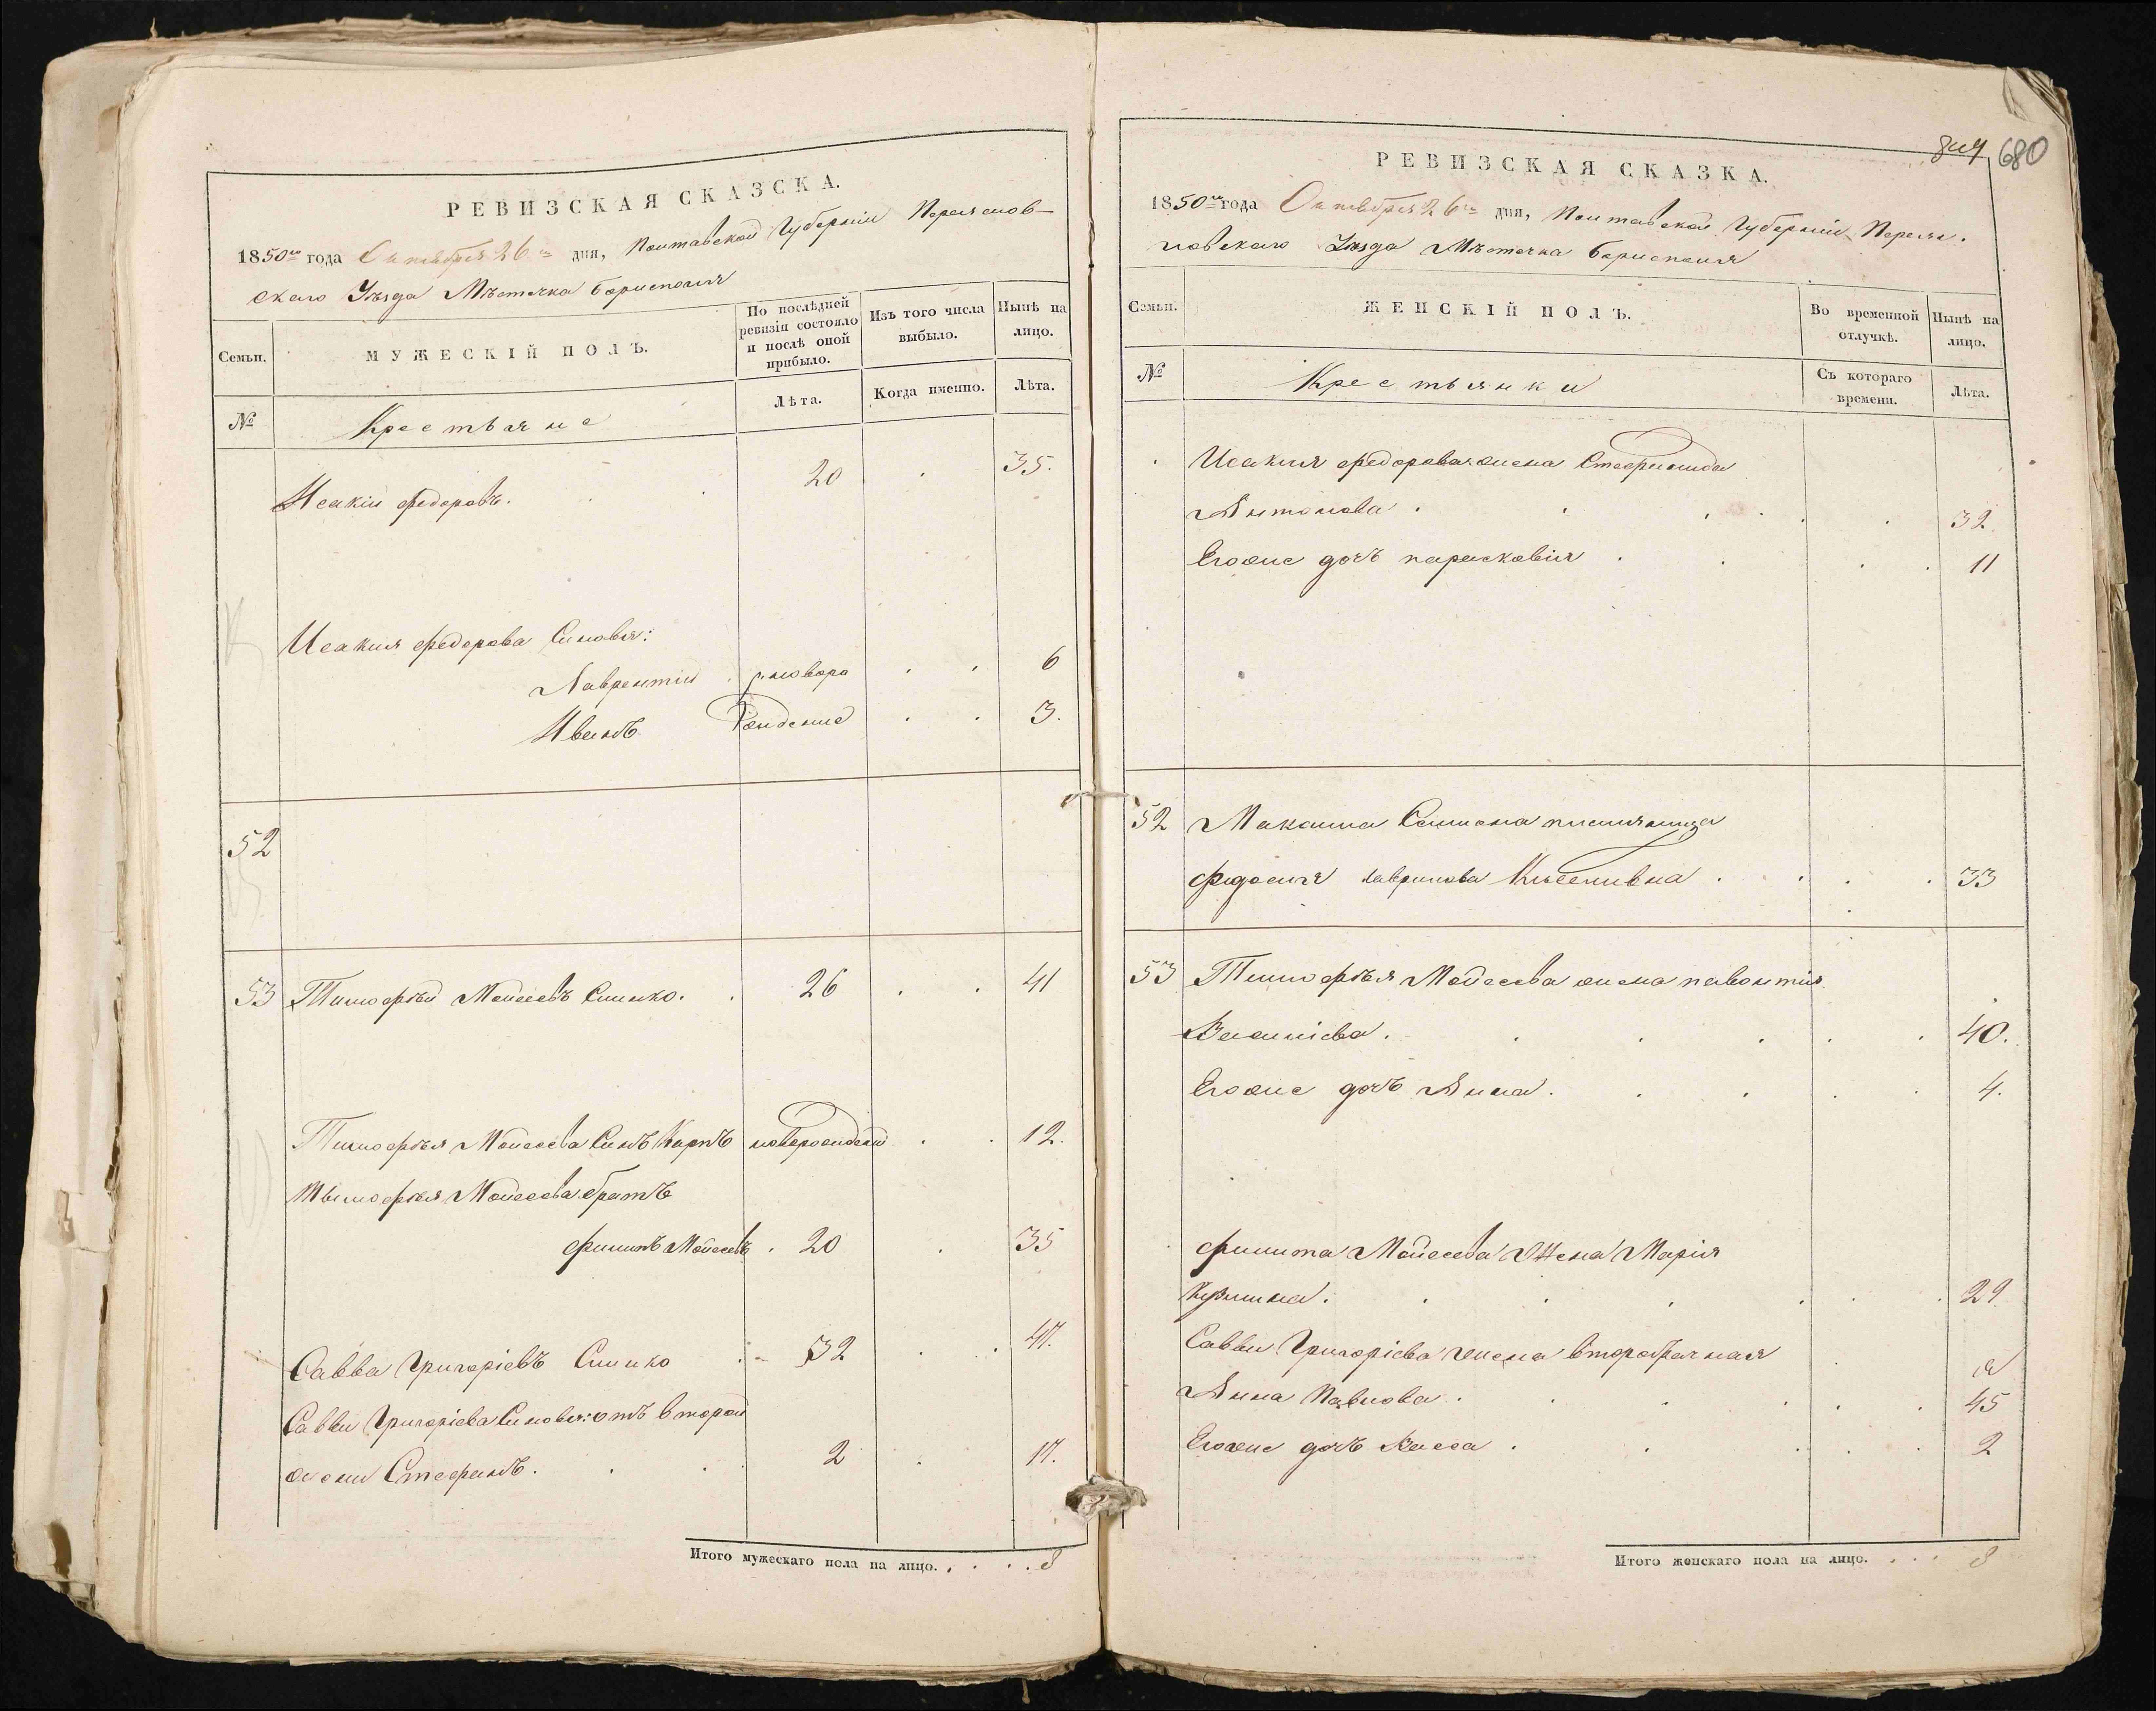 РЕВИЗСКАЯ СКАЗСКА.
1850го года Октября 26го дня, Полтавской Губерніи Переяслов-
скаго Уѣзда Мѣстечка Борисполя
Семьи.
МУЖЕСКІЙ ПОЛЪ.
По послѣдней ревизіи состояло и послѣ оной прибыло.
Изъ того числа выбыло.
Нынѣ на лицо.
№
Крестьяне
Лѣта.
Когда именно.
Лѣта.
Исакій Федоровъ. 20 35.
Исакия Федорова Синовья:
Лаврентій новоро 6
Иванъ ждение 3.
52
53 Тимофѣй Моисеевъ Симко. 26 41
Тимофѣя Моисеева Синъ Карпъ новорожденій 12.
Тымофѣя Моисеева братъ
Филипъ Мойсеевъ 20 35
Савва Григоріевъ Симко 32 47.
Саввы Григоріева Синовья: отъ второй
жены Стефанъ. 2 17.
Итого мужескаго пола на лицо. 8
680
РЕВИЗСКАЯ СКАЗКА.
1850го года Октября 26го дня, Полтавской Губерніи Переяс.
ловскаго Уезда Мѣстечка Борисполя
Семьи.
ЖЕНСКІЙ ПОЛЪ.
Во временной отлучкѣ.
Нынѣ на лицо.
№
Крестьянки
Съ котораго времени.
Лѣта.
Исакия Федорова жена Стефанида
Антонова. 32.
Егоже дочъ парасковія 11
52 Максима Семиона племяница
Федосия лавринова 33
53 Тимофѣя Мойсеева жена
40.
Егоже дочъ Анна. 4.
Филипа Мойсеева Жена Марія
29
Саввы Григоріева жена второбрачная
Анна Павлова. 45
Егоже дочъ Васса. 2
Итого женскаго пола на лицо. 8